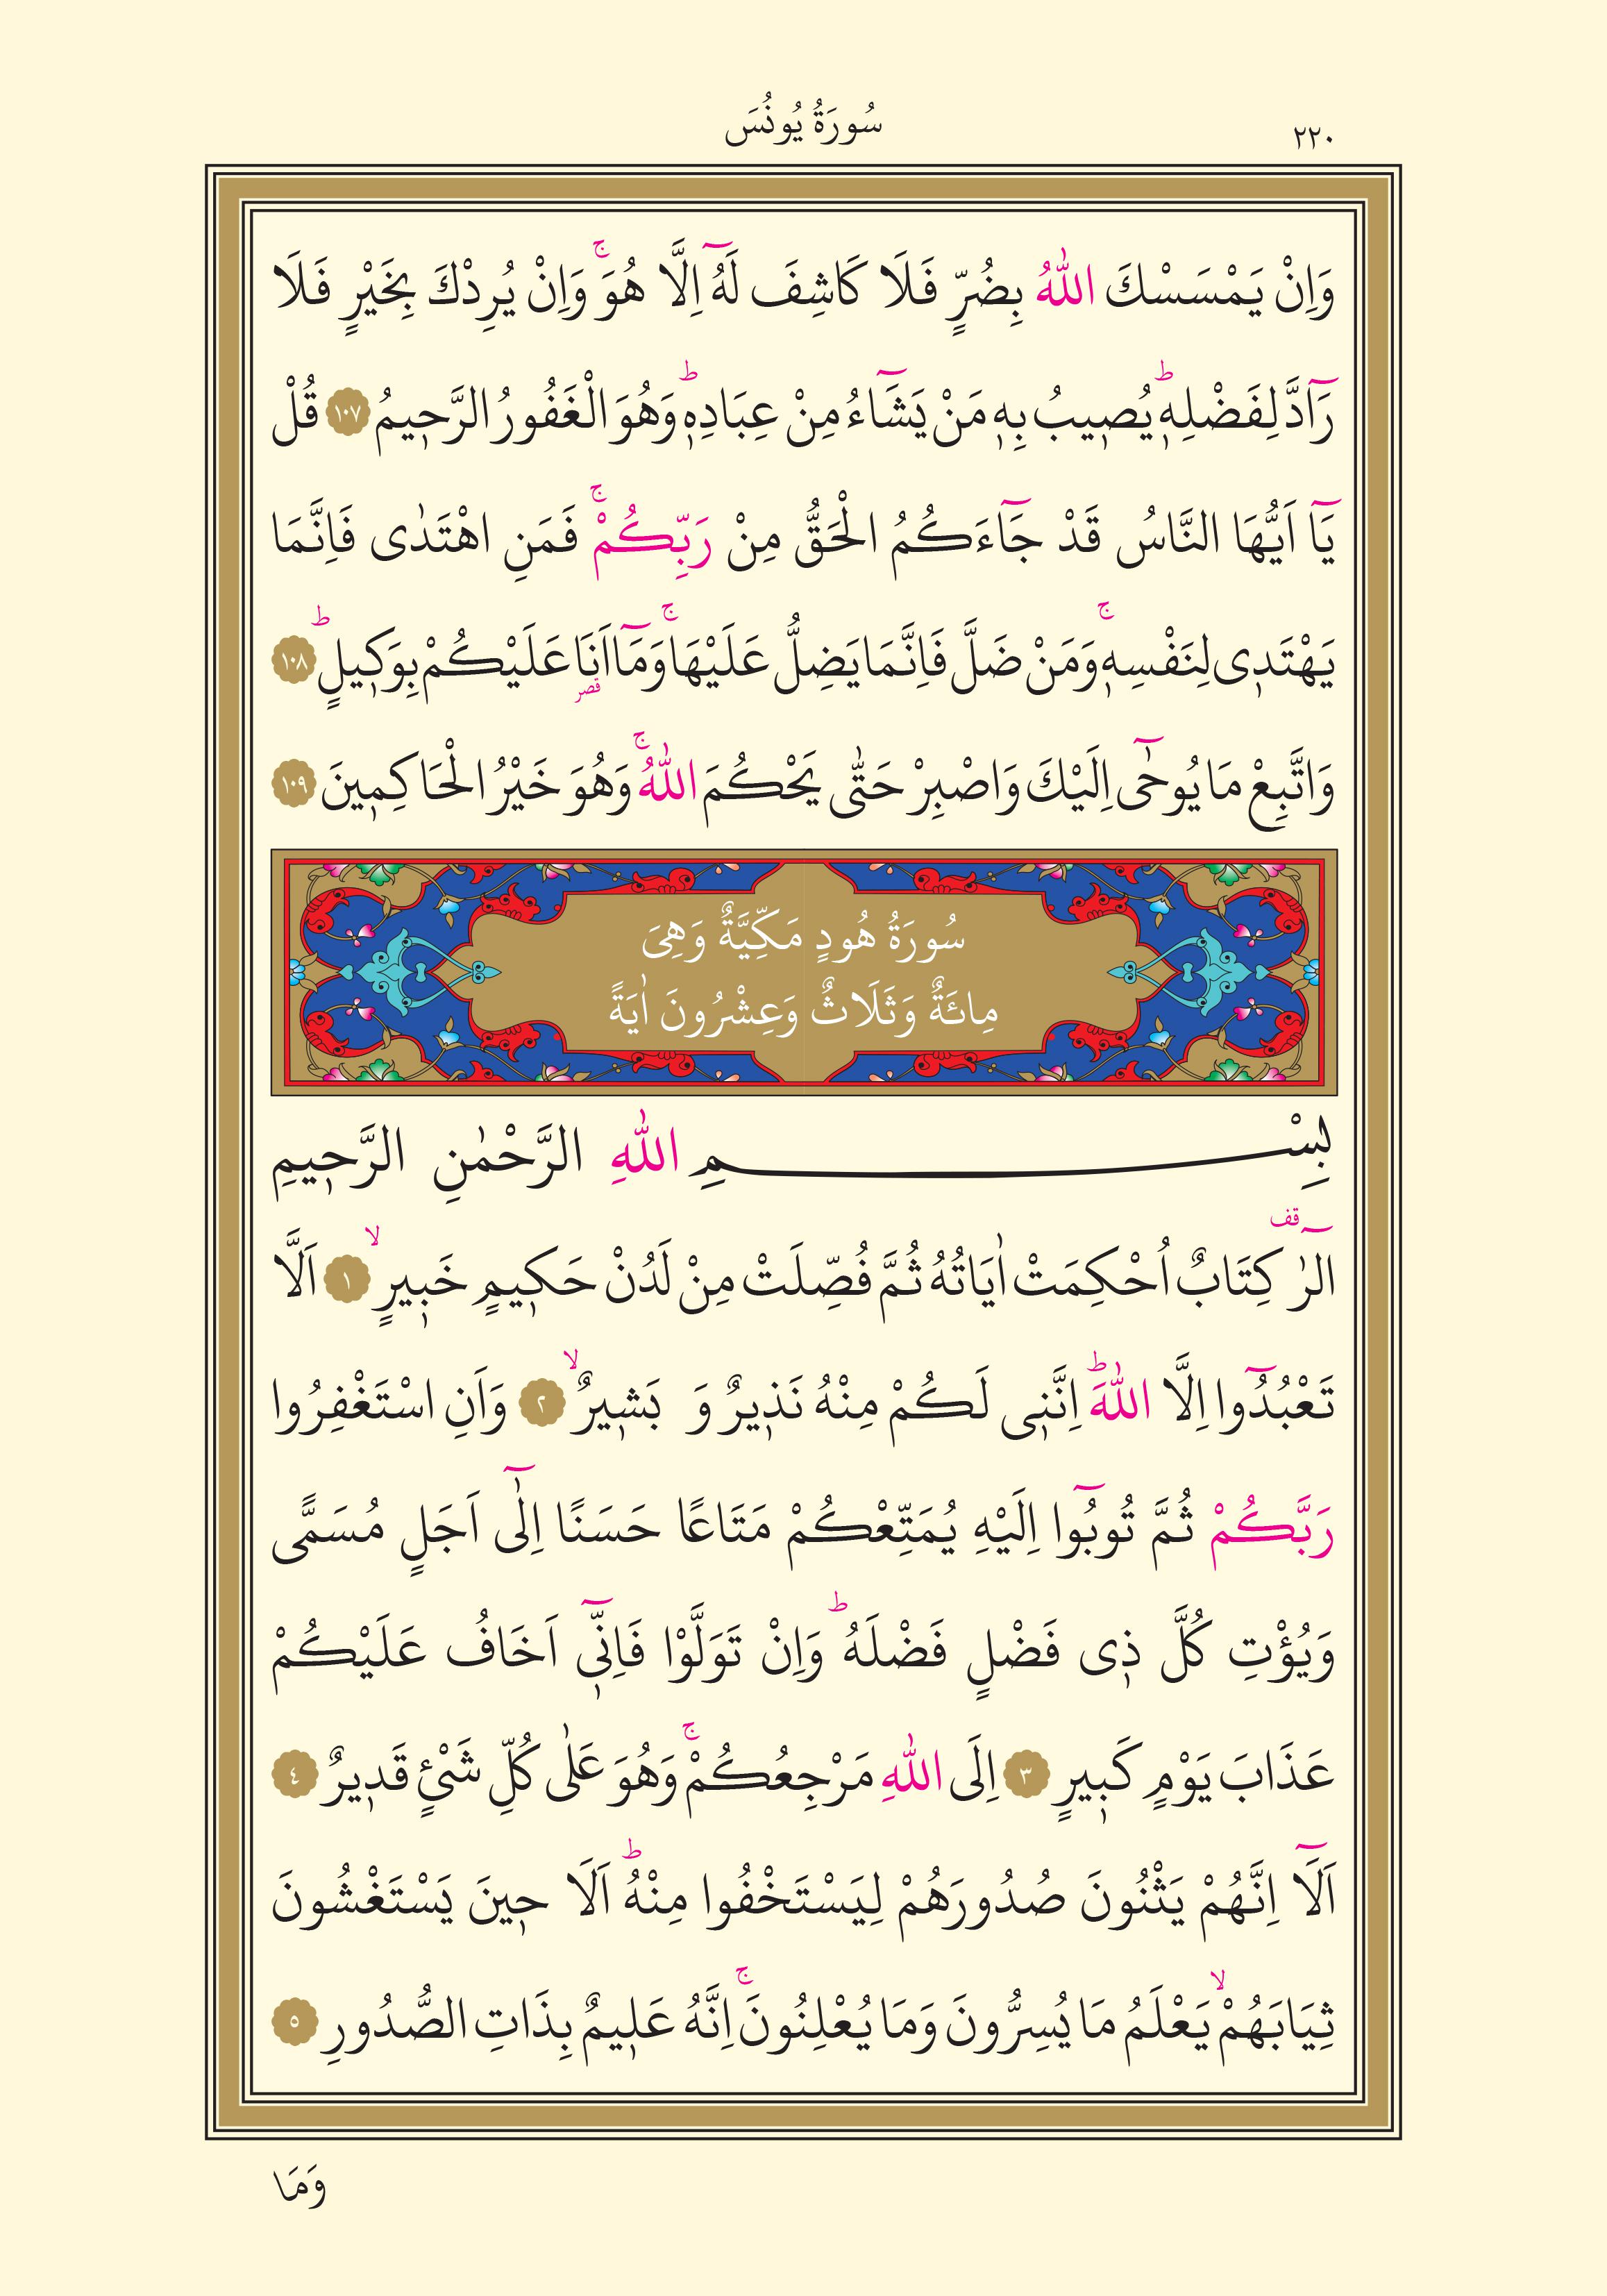 ٢٢٠
سُورَةُ يُونُسَ
وَاِنْ يَمْسَسْكَ اللّٰهُ بِضُرٍّ فَلَا كَاشِفَ لَهُٓ اِلَّا هُوَۚ وَاِنْ يُرِدْكَ بِخَيْرٍ فَلَا
رَٓادَّ لِفَضْلِه۪ۜ يُص۪يبُ بِه۪ مَنْ يَشَٓاءُ مِنْ عِبَادِه۪ۜ وَهُوَ الْغَفُورُ الرَّح۪يمُ ﴿١٠٧﴾ قُلْ
يَٓا اَيُّهَا النَّاسُ قَدْ جَٓاءَكُمُ الْحَقُّ مِنْ رَبِّكُمْۚ فَمَنِ اهْتَدٰى فَاِنَّمَا
يَهْتَد۪ى لِنَفْسِه۪ۚ وَمَنْ ضَلَّ فَاِنَّمَا يَضِلُّ عَلَيْهَاۚ وَمَٓا اَنَا۬ عَلَيْكُمْ بِوَك۪يلٍۜ ﴿١٠٨﴾
قصر
وَاتَّبِعْ مَا يُوحٰٓى اِلَيْكَ وَاصْبِرْ حَتّٰى يَحْكُمَ اللّٰهُۚ وَهُوَ خَيْرُ الْحَاكِم۪ينَ ﴿١٠٩﴾
سُورَةُ هُودٍ مَكِّيَّةٌ وَهِىَ
مِائَةٌ وَثَلَاثٌ وَعِشْرُونَ اٰيَةً
بِسْمِ اللّٰهِ الرَّحْمٰنِ الرَّح۪يمِ
قف
الٓرٰ كِتَابٌ اُحْكِمَتْ اٰيَاتُهُ ثُمَّ فُصِّلَتْ مِنْ لَدُنْ حَك۪يمٍ خَب۪يرٍۙ ﴿١﴾ اَلَّا
تَعْبُدُٓوا اِلَّا اللّٰهَۜ اِنَّن۪ى لَكُمْ مِنْهُ نَذ۪يرٌ وَ بَش۪يرٌۙ ﴿٢﴾ وَاَنِ اسْتَغْفِرُوا
رَبَّكُمْ ثُمَّ تُوبُٓوا اِلَيْهِ يُمَتِّعْكُمْ مَتَاعًا حَسَنًا اِلٰٓى اَجَلٍ مُسَمًّى
وَيُؤْتِ كُلَّ ذ۪ى فَضْلٍ فَضْلَهُۜ وَاِنْ تَوَلَّوْا فَاِنّ۪ٓى اَخَافُ عَلَيْكُمْ
عَذَابَ يَوْمٍ كَب۪يرٍ ﴿٣﴾ اِلَى اللّٰهِ مَرْجِعُكُمْۚ وَهُوَ عَلٰى كُلِّ شَىْءٍ قَد۪يرٌ ﴿٤﴾
اَلَٓا اِنَّهُمْ يَثْنُونَ صُدُورَهُمْ لِيَسْتَخْفُوا مِنْهُۜ اَلَا ح۪ينَ يَسْتَغْشُونَ
ثِيَابَهُمْۙ يَعْلَمُ مَا يُسِرُّونَ وَمَا يُعْلِنُونَۚ اِنَّهُ عَل۪يمٌ بِذَاتِ الصُّدُورِ ﴿٥﴾
وَمَا